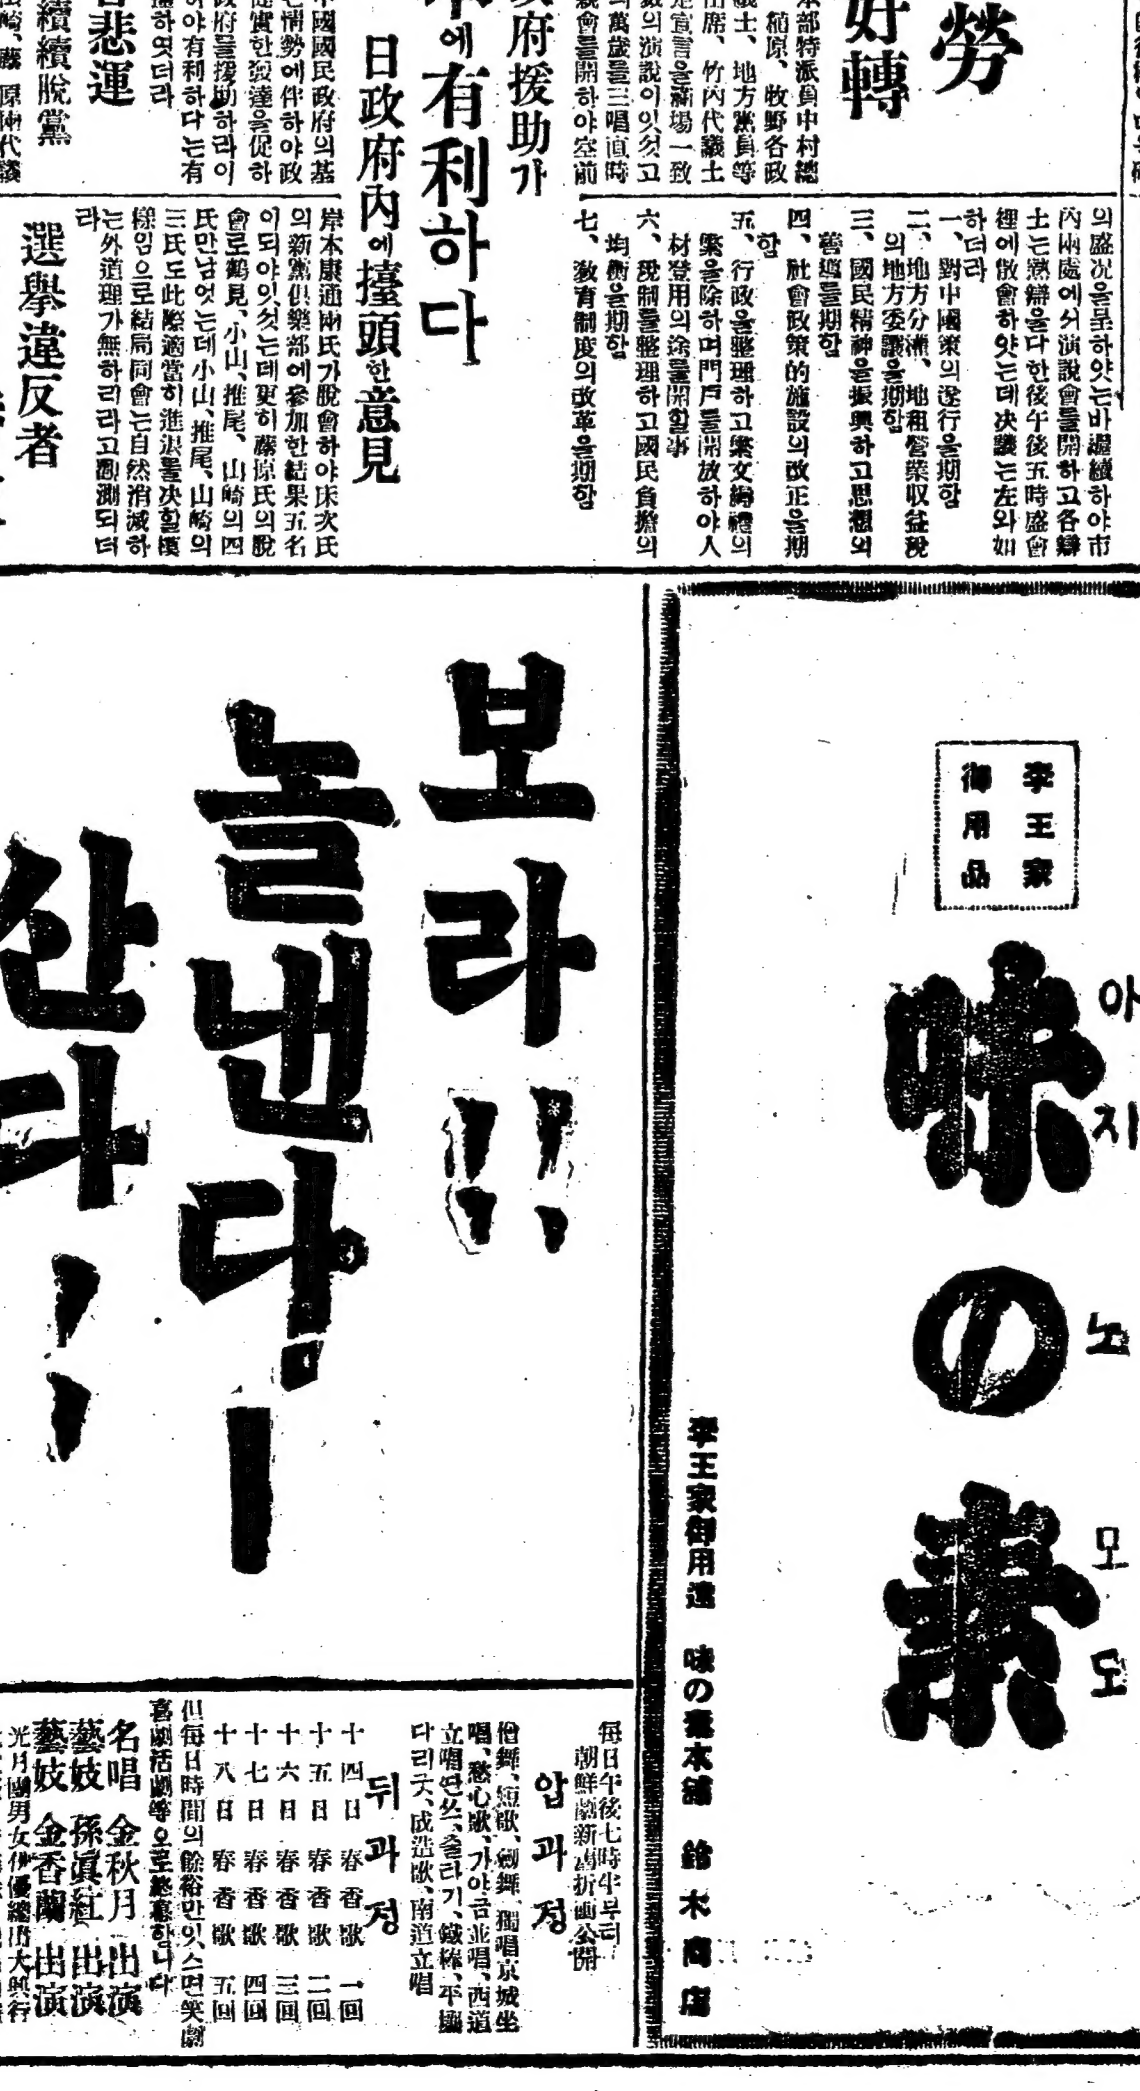 勞
好轉
本部特派員中村總
稲原、牧野各政
議士、地方黨員等
出席、竹內代議士
宣言을滿場一致
의演說이잇섯고
의萬歲를三唱直時
會를開하야空前
의盛况을呈하얏는바繼續하야市
內兩處에서演說會를開하고各辯
士는熱辯을다한後午後五時盛會
裡에散會하얏는데决議는左와如
하더라
一、對中國策의遂行을期함
二、地方分權、地租營業収益稅
의地方委讓을期함
三、國民精神을振興하고思想의
善導를期함
四、社會政策的施設의改正을期
함
五、行政을整理하고繁文縟禮의
繁을除하며門戶를開放하야人
材登用의途를開할事
六、稅制를整理하고國民負擔의
均衡을期함
七、敎育制度의改革을期함
政府援助가
에有利하다
日政府內에擡頭한意見
中國國民政府의基
情勢에伴하야政
健實한發達을促하
政府를援助하라이
하야有利하다는有
하엿더라
悲運
續續脫黨
岸本康通兩氏가脫會하야床次氏
의新黨俱樂部에參加한結果五名
이되야잇섯는데更히藤原氏의脫
會로鶴見、小山、推尾、山崎의四
氏만남엇는데小山、推尾、山崎의
三氏도此際適當히進退를决할模
樣임으로結局同會는自然消滅하
는外道理가無하리라고觀測되더
라
選擧違反者
李王家
御用品
아지노모도
味の素
李王家御用達 味の素本舖 鈴木商店
보라!!
놀낸다!
산다!!
每日午後七時半부터
朝鮮劇新舊折画公開
압과정
僧舞、短歌、劒舞、獨唱京城坐
唱、愁心歌、가야금並唱、西道
立唱딴쓰、줄타기、鐵棒、平壤
다리굿、成造歌、南道立唱
뒤과정
十四日 春香歌 一回
十五日 春香歌 二回
十六日 春香歌 三回
十七日 春香歌 四回
十八日 春香歌 五回
但每日時間의餘裕만잇스면笑劇
喜劇活劇等으로終幕합니다
名唱 金秋月 出演
藝妓 孫眞紅 出演
藝妓 金香蘭 出演
光月團男女俳優總出大興行